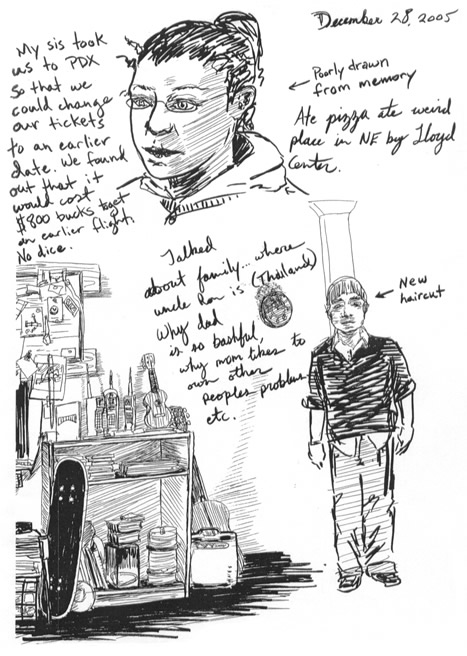 December 28, 2005
My sis took
us to PDX
so that we
could change
our tickets
to an earlier
date. We found
out that it
would cost
$800 bucks to get
an earlier flight.
No dice.
← Poorly drawn
from memory
Ate pizza ate weird
place in NE by Lloyd
Center.
Talked
about family... where
uncle Ron is (Thailand)
Why dad
is so bashful,
why mom likes to
own other
peoples problems
etc.
← New
haircut